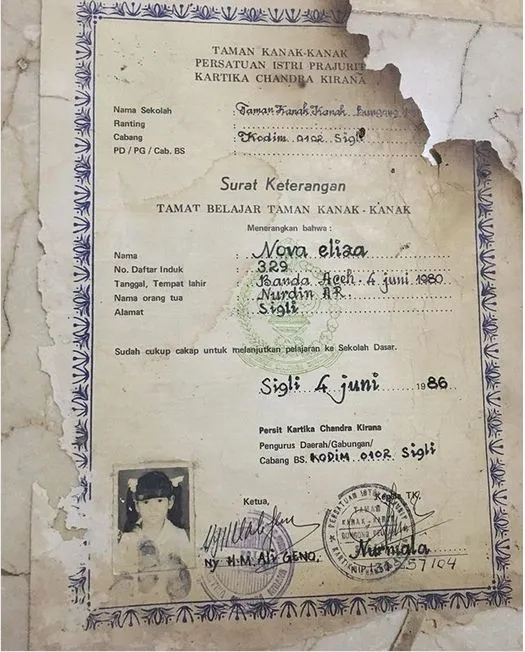 TAMAN KANAK-KANAK
PERSATUAN ISTRI PRAJURIT
KARTIKA CHANDRA KIRANA
Nama Sekolah : Taman Kanak Kanak Bungong
Ranting :
Cabang : Kodim 0102 Sigli
PD / PG / Cab. BS
Surat Keterangan
TAMAT BELAJAR TAMAN KANAK - KANAK
Menerangkan bahwa :
Nama : Nova eliza
No. Daftar Induk : 329
Tanggal, Tempat lahir : Banda Aceh. 4 juni 1980
Nama orang tua : Nurdin AR.
Alamat : Sigli
Sudah cukup cakap untuk melanjutkan pelajaran ke Sekolah Dasar.
Sigli 4 juni 1986.
Persit Kartika Chandra Kirana
Pengurus Daerah/Gabungan/
Cabang BS. KODIM 0102 Sigli
Ketua, Kepala TK,
Ny. H.M. Ali GENO. Nurmala
NIP. 131